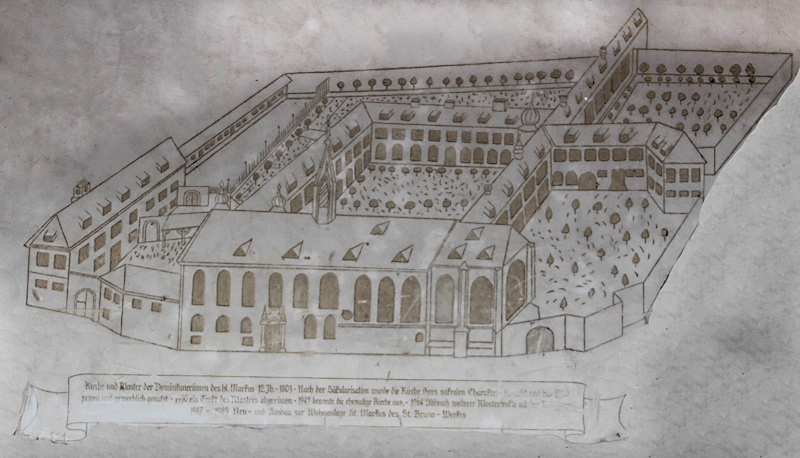 Kirche und Kloster der Dominikanerinnen des hl. Markus 12. Jh. - 1803 · Nach der Säkularisation wurde die Kirche ihres sakralen Charakters
und gewerblich genutzt · ein Trakt des Klosters abgerissen · 1945 brannte die ehemalige Kirche aus · Abbruch weiterer
1987 - 1989 Neu- und Ausbau zur Wohnanlage St. Markus des St. Bruno - Werkes